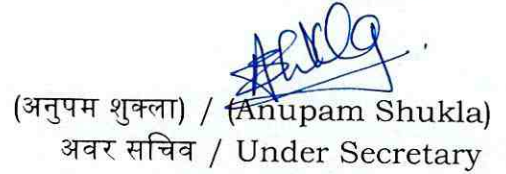 (अनुपम शुक्ला) / (Anupam Shukla)
अवर सचिव / Under Secretary